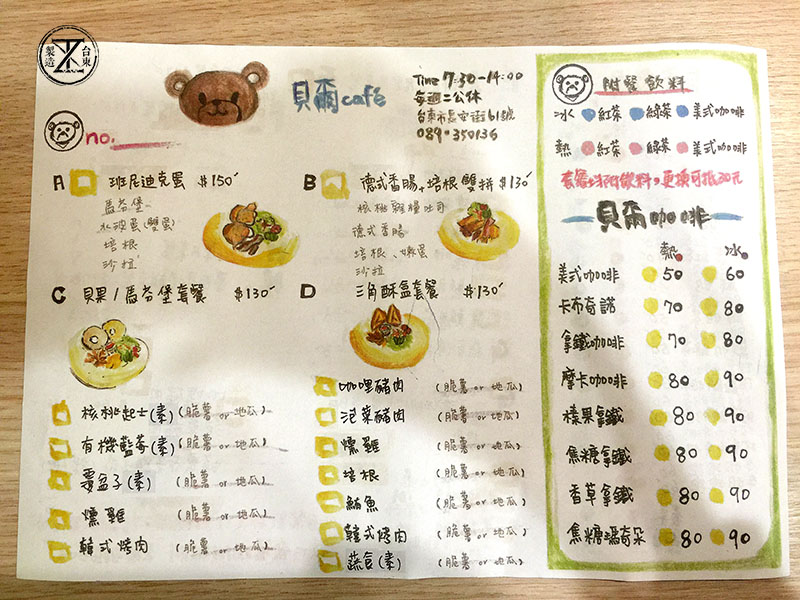 台東
製造
貝爾café
Time 7:30-14:00
每週二公休
台東市長安街61號
089-350136
no.
A 班尼迪克蛋 $150
馬芬堡
水波蛋(雙蛋)
培根
沙拉
B 德式香腸+培根雙拼 $130
核桃雜糧吐司
德式香腸
培根、嫩蛋
沙拉
C 貝果/馬芬堡套餐 $130
核桃起士(素) (脆薯 or 地瓜)
有機藍莓(素) (脆薯 or 地瓜)
覆盆子(素) (脆薯 or 地瓜)
燻雞 (脆薯 or 地瓜)
韓式烤肉 (脆薯 or 地瓜)
D 三角酥盒套餐 $130
咖哩豬肉 (脆薯 or 地瓜)
泡菜豬肉 (脆薯 or 地瓜)
燻雞 (脆薯 or 地瓜)
培根 (脆薯 or 地瓜)
鮪魚 (脆薯 or 地瓜)
韓式烤肉 (脆薯 or 地瓜)
蔬食(素) (脆薯 or 地瓜)
附餐飲料
冰 紅茶 綠茶 美式咖啡
熱 紅茶 綠茶 美式咖啡
套餐均附飲料,更換可抵30元
貝爾咖啡
熱 冰
美式咖啡 50 60
卡布奇諾 70 80
拿鐵咖啡 70 80
摩卡咖啡 80 90
榛果拿鐵 80 90
焦糖拿鐵 80 90
香草拿鐵 80 90
焦糖瑪奇朵 80 90